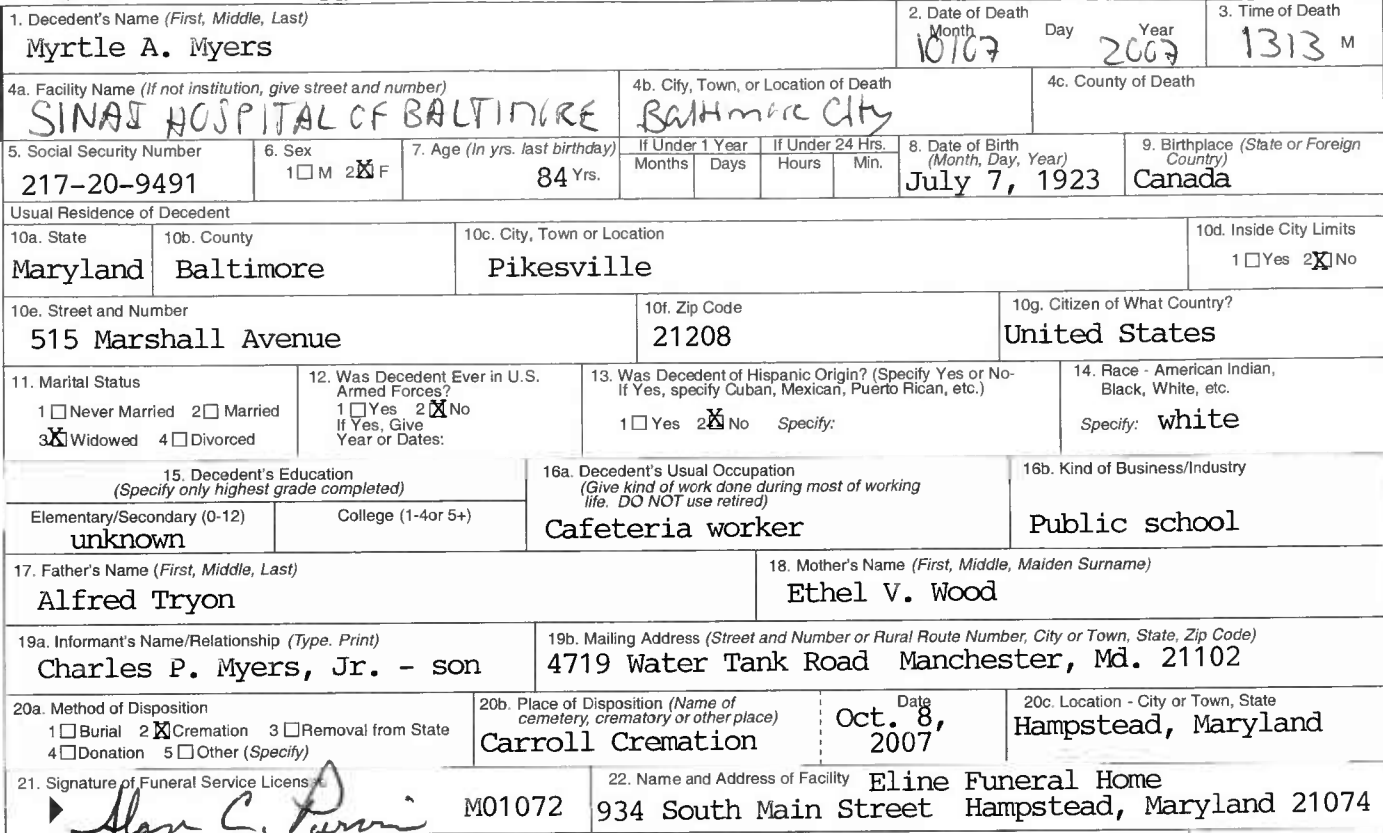 1. Decedent's Name (First, Middle, Last)
Myrtle A. Myers
2. Date of Death
Month Day Year
10/07 2007
3. Time of Death
1313 M
4a. Facility Name (If not institution, give street and number)
SINAI HOSPITAL OF BALTIMORE
4b. City, Town, or Location of Death
Baltimore City
4c. County of Death
5. Social Security Number
217-20-9491
6. Sex
1 ☐ M 2 ☒ F
7. Age (In yrs. last birthday)
84 Yrs.
If Under 1 Year
Months Days
If Under 24 Hrs.
Hours Min.
8. Date of Birth
(Month, Day, Year)
July 7, 1923
9. Birthplace (State or Foreign
Country)
Canada
Usual Residence of Decedent
10a. State
Maryland
10b. County
Baltimore
10c. City, Town or Location
Pikesville
10d. Inside City Limits
1 ☐ Yes 2 ☒ No
10e. Street and Number
515 Marshall Avenue
10f. Zip Code
21208
10g. Citizen of What Country?
United States
11. Marital Status
1 ☐ Never Married 2 ☐ Married
3 ☒ Widowed 4 ☐ Divorced
12. Was Decedent Ever in U.S.
Armed Forces?
1 ☐ Yes 2 ☒ No
If Yes, Give
Year or Dates:
13. Was Decedent of Hispanic Origin? (Specify Yes or No-
If Yes, specify Cuban, Mexican, Puerto Rican, etc.)
1 ☐ Yes 2 ☒ No Specify:
14. Race - American Indian,
Black, White, etc.
Specify: white
15. Decedent's Education
(Specify only highest grade completed)
Elementary/Secondary (0-12)
unknown
College (1-4or 5+)
16a. Decedent's Usual Occupation
(Give kind of work done during most of working
life. DO NOT use retired)
Cafeteria worker
16b. Kind of Business/Industry
Public school
17. Father's Name (First, Middle, Last)
Alfred Tryon
18. Mother's Name (First, Middle, Maiden Surname)
Ethel V. Wood
19a. Informant's Name/Relationship (Type. Print)
Charles P. Myers, Jr. - son
19b. Mailing Address (Street and Number or Rural Route Number, City or Town, State, Zip Code)
4719 Water Tank Road Manchester, Md. 21102
20a. Method of Disposition
1 ☐ Burial 2 ☒ Cremation 3 ☐ Removal from State
4 ☐ Donation 5 ☐ Other (Specify)
20b. Place of Disposition (Name of
cemetery, crematory or other place)
Carroll Cremation
Date
Oct. 8,
2007
20c. Location - City or Town, State
Hampstead, Maryland
21. Signature of Funeral Service Licens
Alan C. M01072
22. Name and Address of Facility Eline Funeral Home
934 South Main Street Hampstead, Maryland 21074